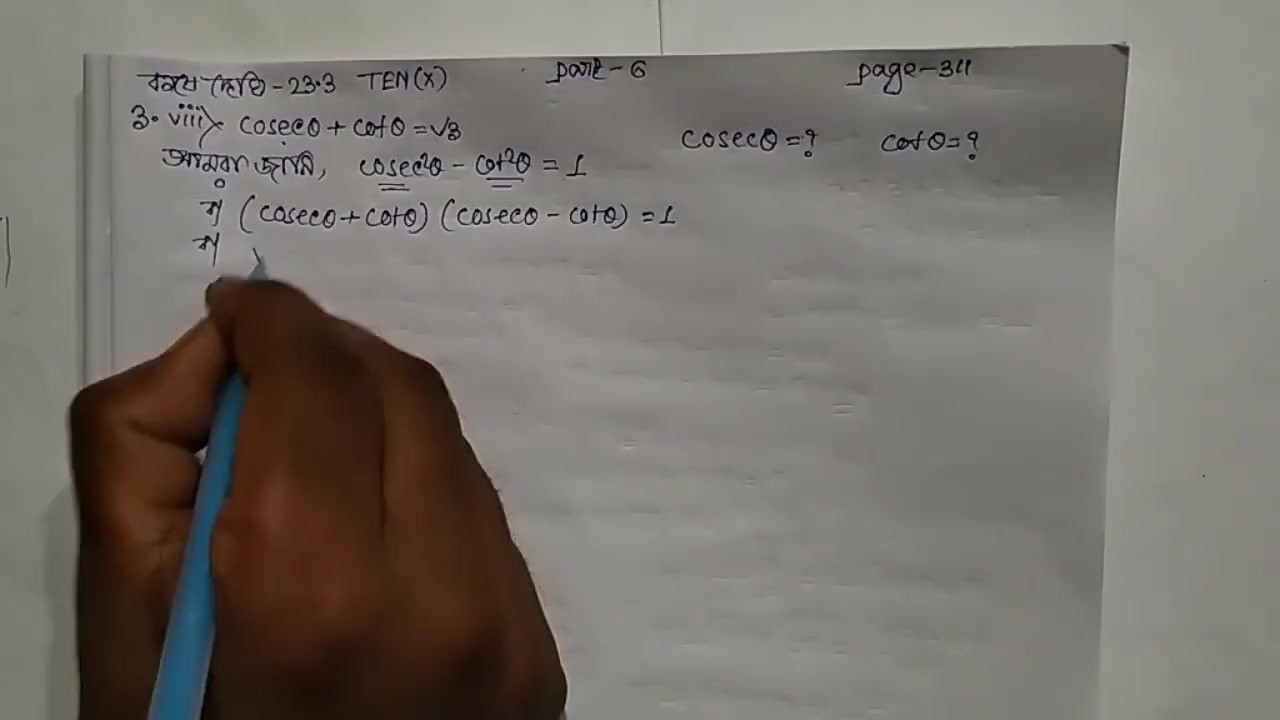 কষে দেখি - 23.3 TEN(X) part - 6 page - 311
3. viii) cosecθ + cotθ = √3 cosecθ = ? cotθ = ?
আমরা জানি, cosec²θ - cot²θ = 1
বা (cosecθ + cotθ) (cosecθ - cotθ) = 1
বা